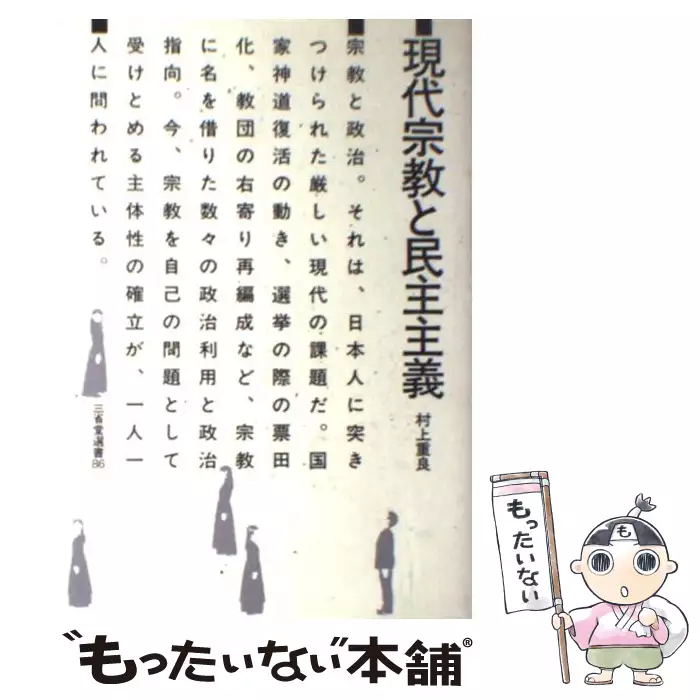 ■現代宗教と民主主義
村上重良
■宗教と政治。それは、日本人に突き
つけられた厳しい現代の課題だ。国
家神道復活の動き、選挙の際の票田
化、教団の右寄り再編成など、宗教
に名を借りた数々の政治利用と政治
指向。今、宗教を自己の問題として
受けとめる主体性の確立が、一人一
人に問われている。
三省堂選書86
も
もったいない
"もったいない本舗"®